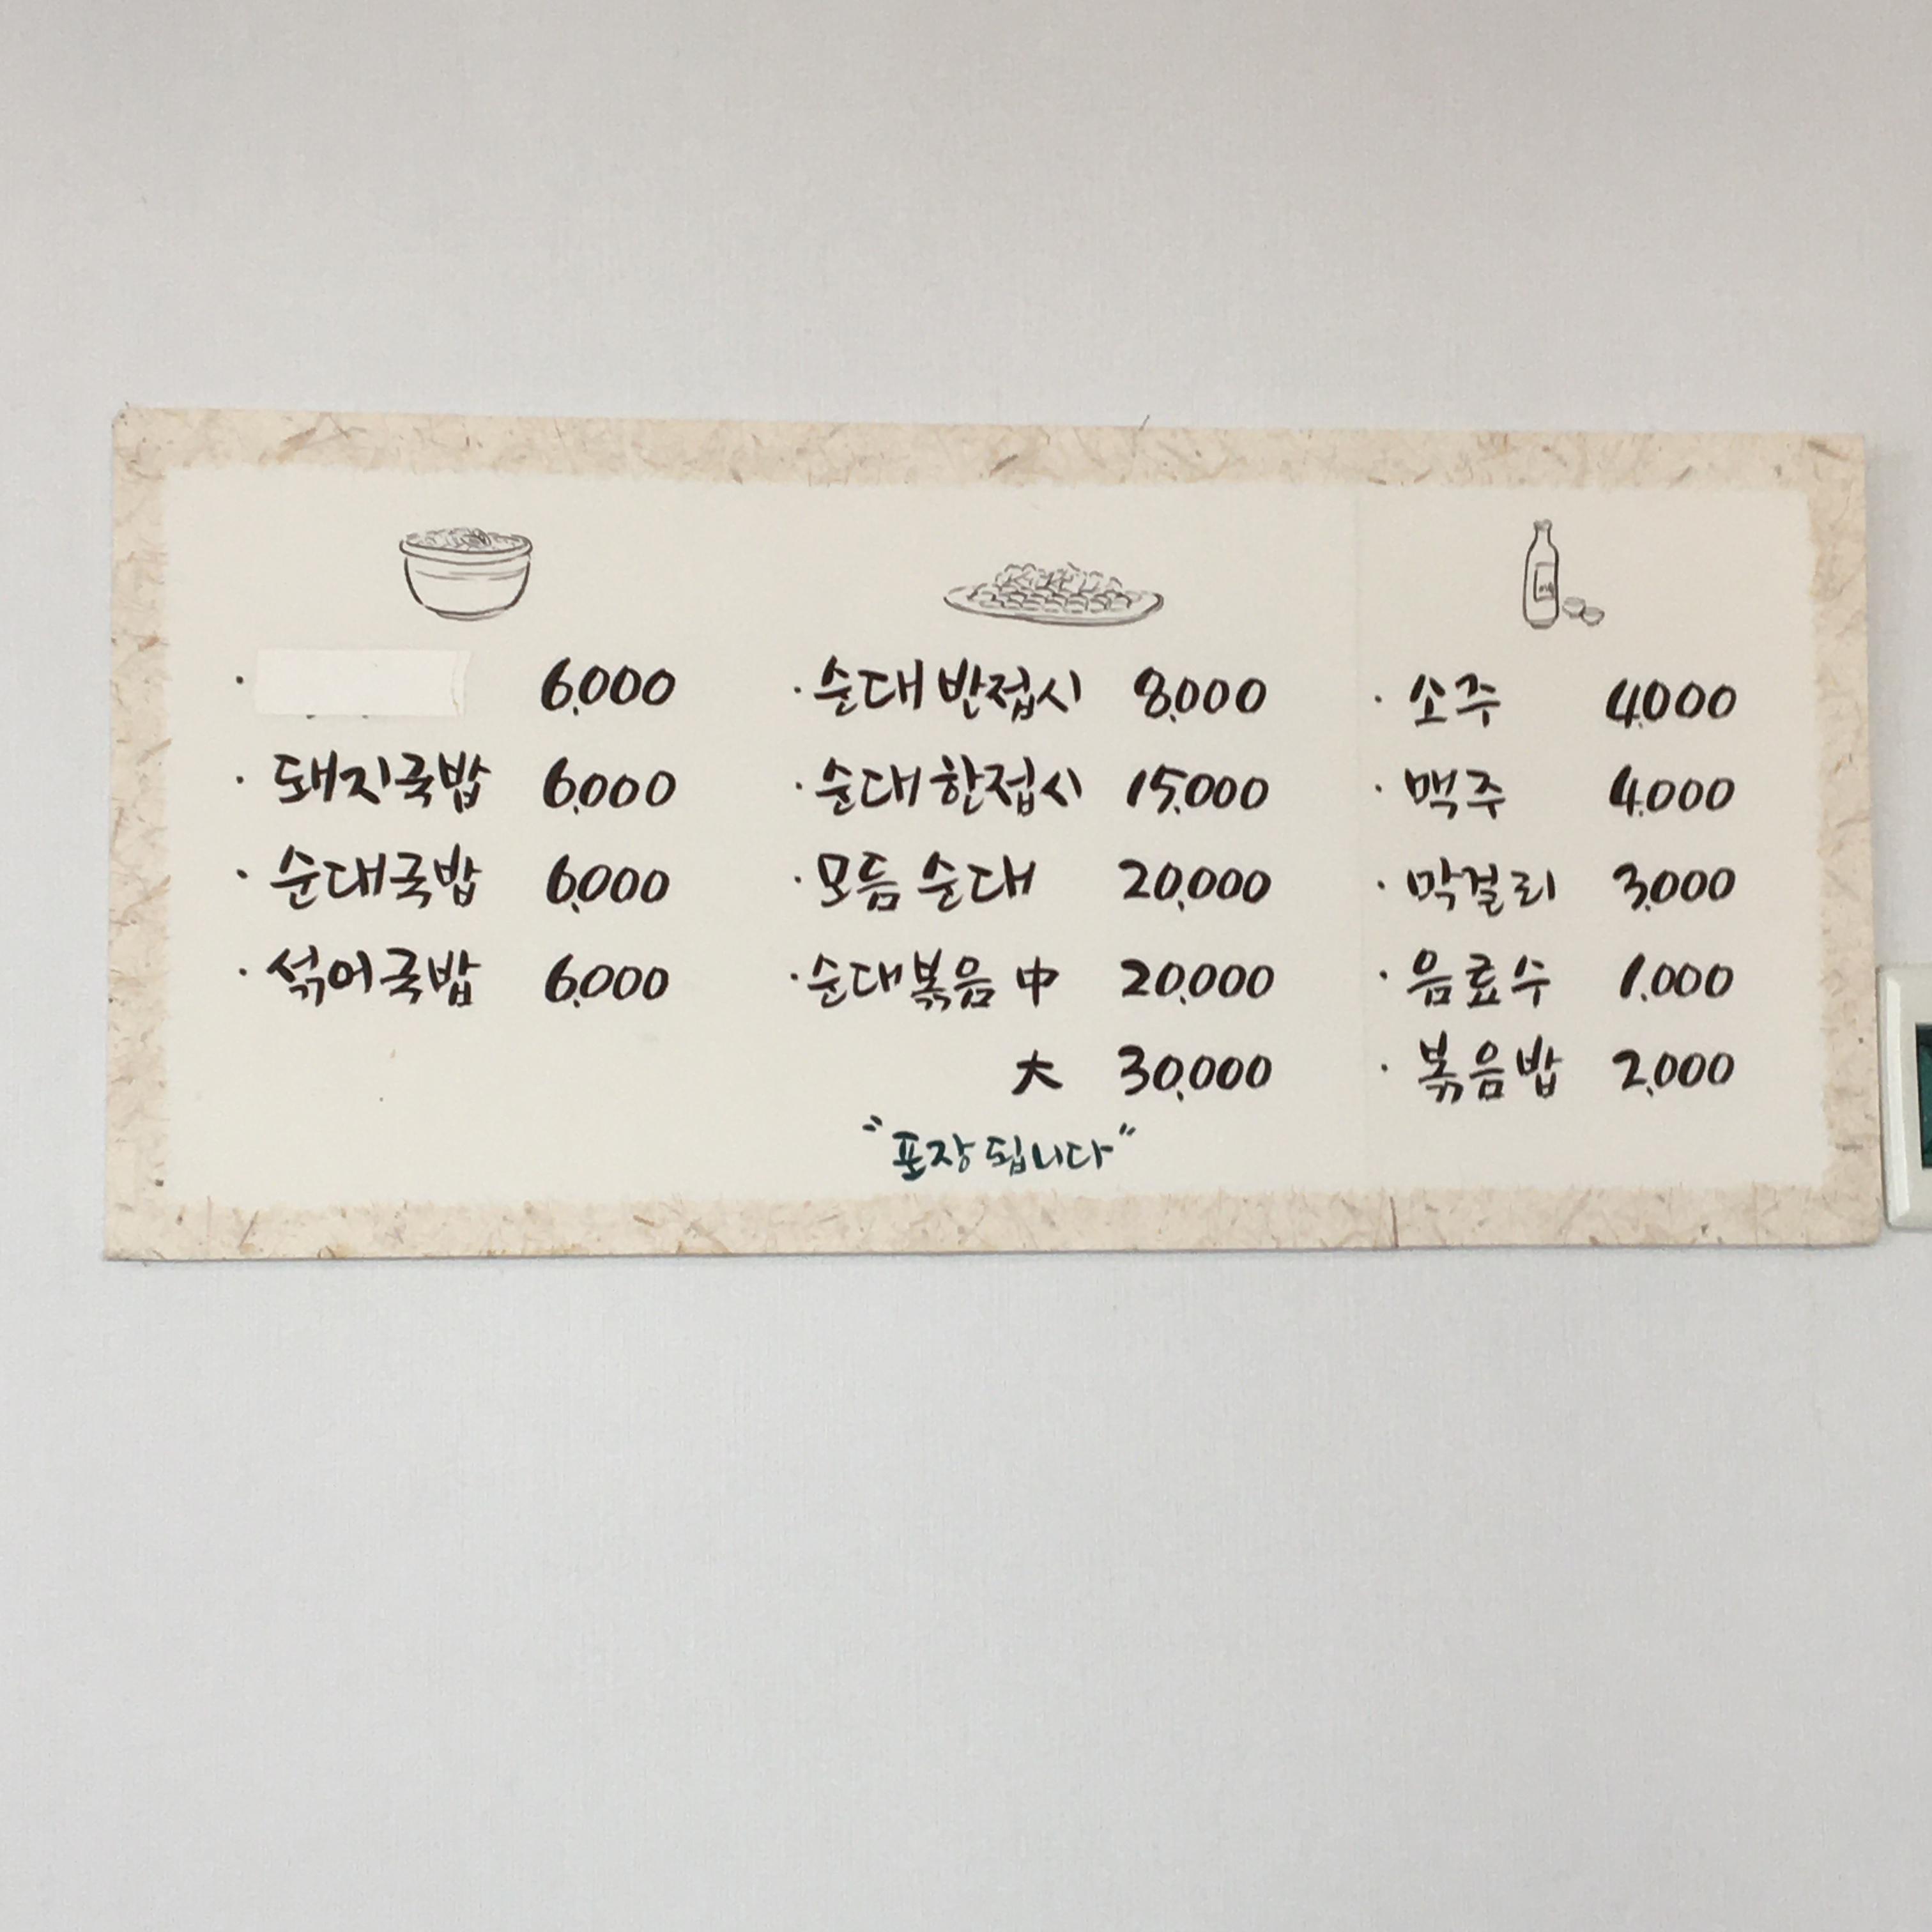 · 6,000
· 돼지국밥 6,000
· 순대국밥 6,000
· 섞어국밥 6,000
· 순대 반접시 8,000
· 순대 한접시 15,000
· 모듬 순대 20,000
· 순대볶음 中 20,000
大 30,000
"포장 됩니다"
· 소주 4,000
· 맥주 4,000
· 막걸리 3,000
· 음료수 1,000
· 볶음밥 2,000